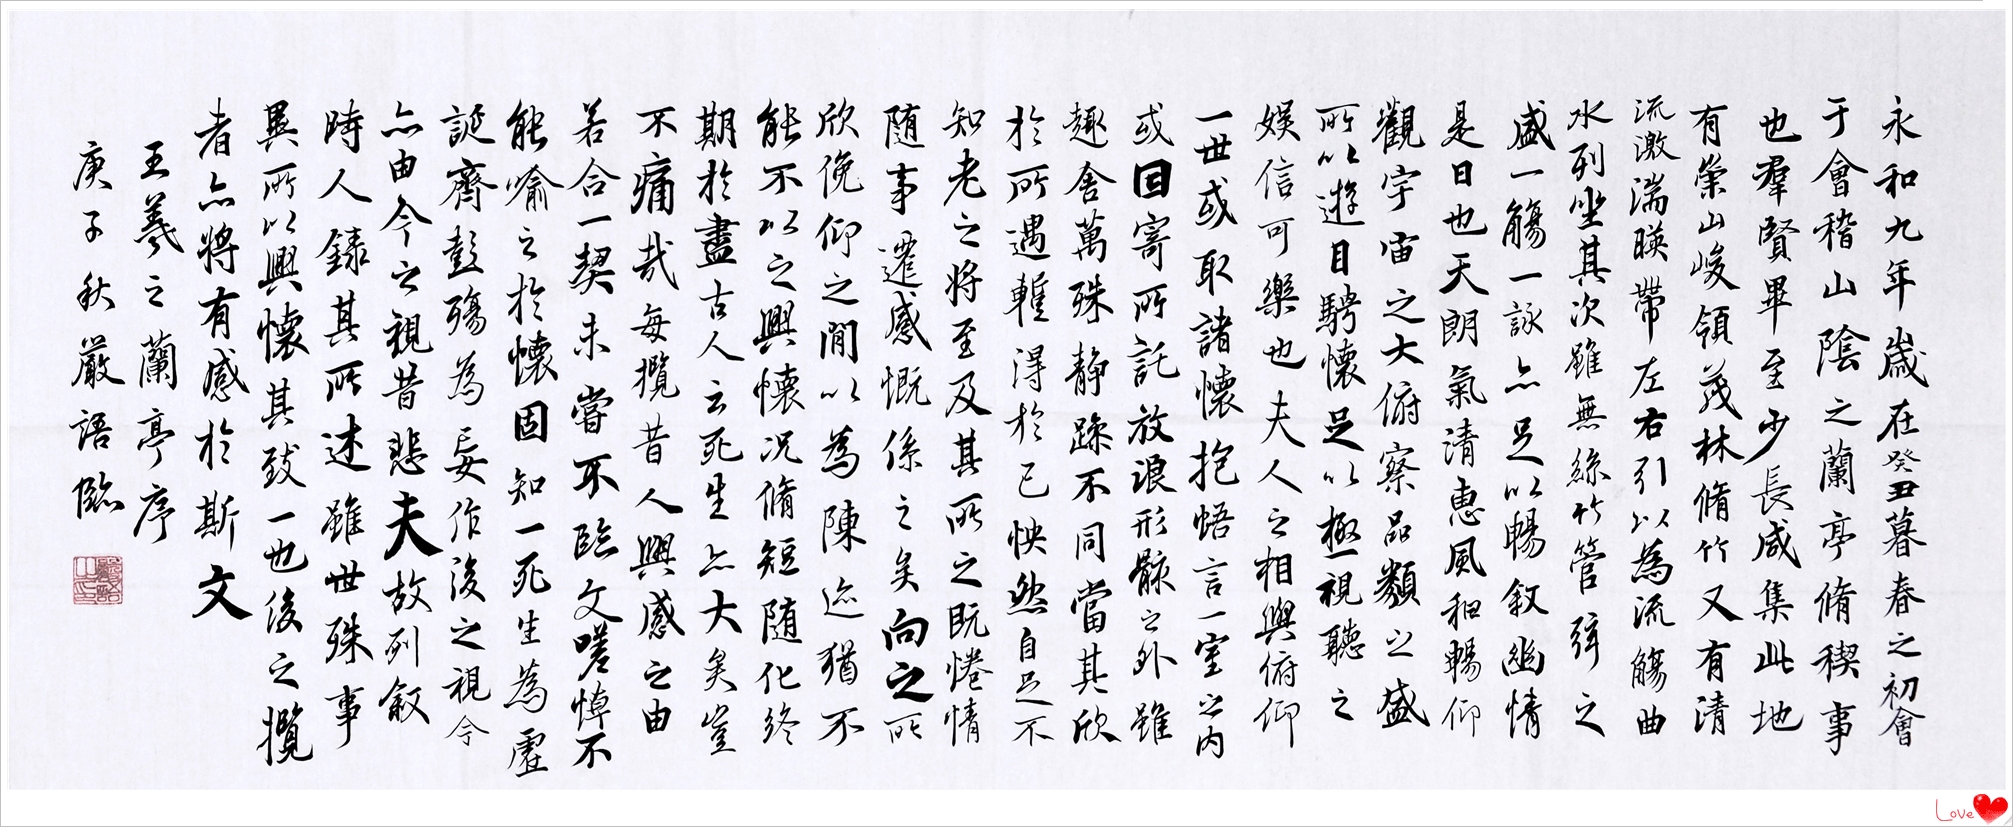 永和九年歲在癸丑暮春之初會
于會稽山陰之蘭亭脩稧事
也羣賢畢至少長咸集此地
有崇山峻領茂林脩竹又有清
流激湍暎帶左右引以為流觴曲
水列坐其次雖無絲竹管弦之
盛一觴一詠亦足以暢敘幽情
是日也天朗氣清惠風和暢仰
觀宇宙之大俯察品類之盛
所以遊目騁懷足以極視聽之
娛信可樂也夫人之相與俯仰
一世或取諸懷抱悟言一室之內
或因寄所託放浪形骸之外雖
趣舍萬殊靜躁不同當其欣
於所遇暫得於己怏然自足不
知老之將至及其所之既惓情
隨事遷感慨係之矣向之所
欣俛仰之閒以為陳迹猶不
能不以之興懷況脩短隨化終
期於盡古人云死生亦大矣豈
不痛哉每攬昔人興感之由
若合一契未嘗不臨文嗟悼不
能喻之於懷固知一死生為虛
誕齊彭殤為妄作後之視今
亦由今之視昔悲夫故列敘
時人錄其所述雖世殊事
異所以興懷其致一也後之攬
者亦將有感於斯文
王羲之蘭亭序
庚子秋嚴語臨
Love